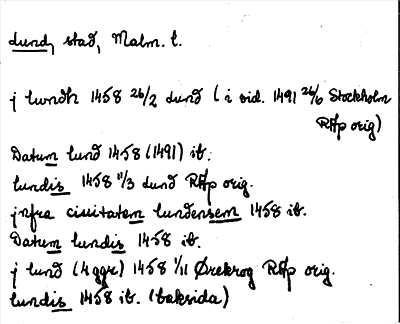 Lund, stad, Malm. l.
j lundh 1458 26/2 Lund (i vid. 1491 26/6 Stockholm
RAp orig)
Datum lund 1458 (1491) ib.
lundis 1458 11/3 Lund RAp orig.
jnfra ciuitatem lundensem 1458 ib.
Datum lundis 1458 ib.
j lund (4 ggr) 1458 1/11 Örekrog RAp orig.
lundis 1458 ib. (baksida)